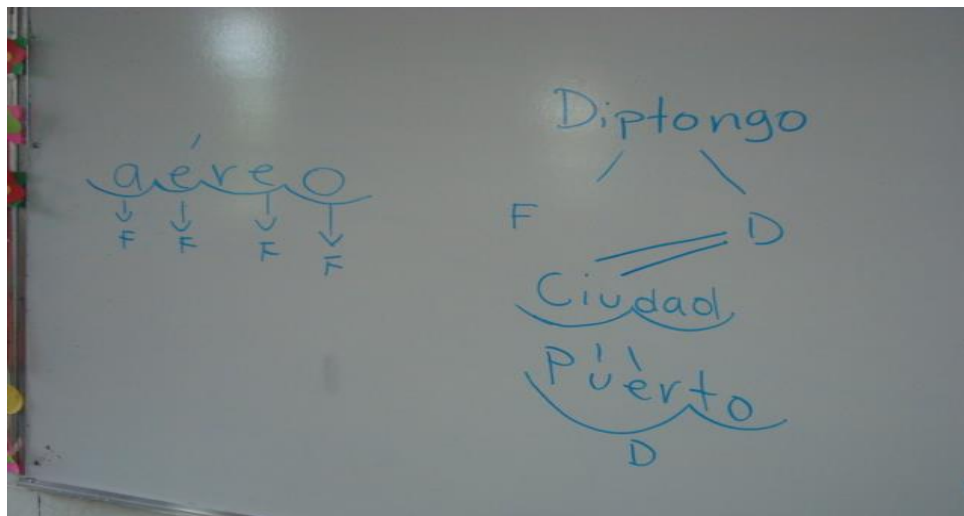 aéreo
F F F F
Diptongo
F D
Ciudad
Puerto
D